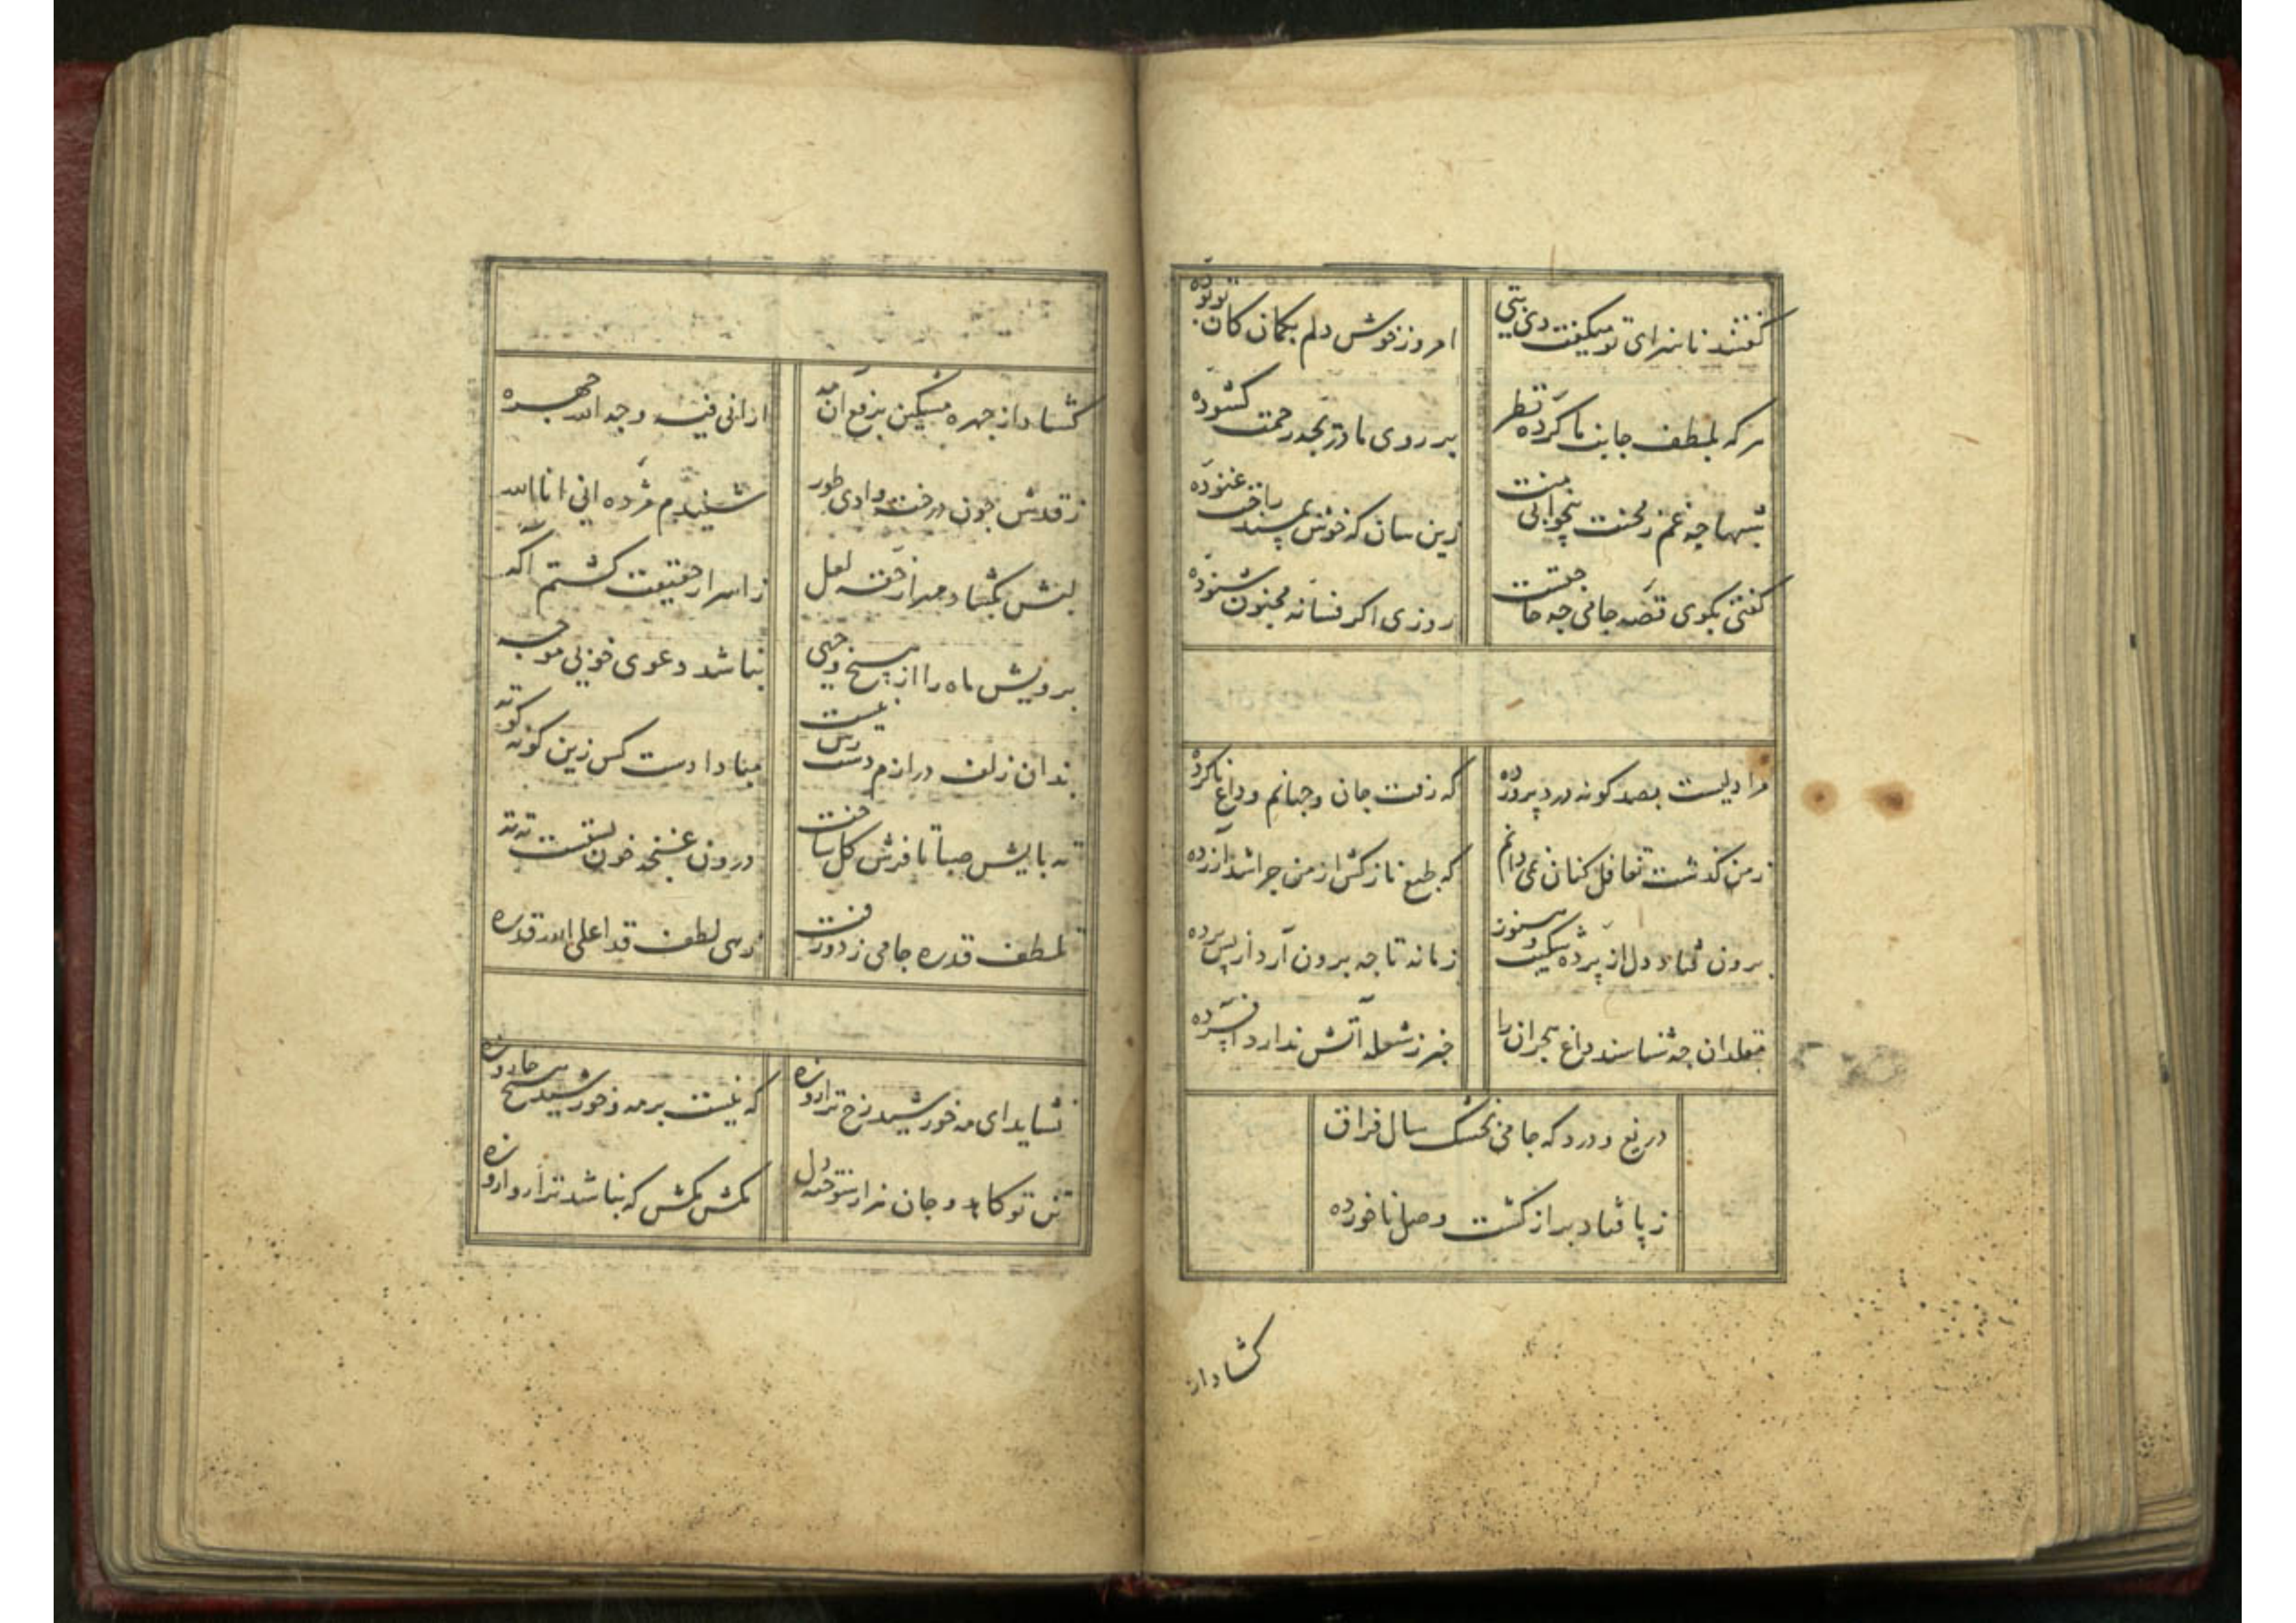 گفتند ناسزای تو میگفت دی بتی
امروز خوش دلم بگمان کان تو بوده
هر که بلطف جانب ما کرده نظر
بر روی ما دری بحد رحمت کشوده
شبها چه غم ز محنت بیخوابی منت
زین سان که خوش ببستر راحت غنوده
گفتی بگوی قصه جامی چه حاجتست
روزی اگر فسانه مجنون شنوده
مرا دلیست بصد گونه درد پرورده
که رفت جان و جهانم وداع ناکرده
ز من گذشت تغافل کنان نمی دانم
که طبع نازکش از من چرا شد آزرده
برون فتاد دل از پرده شکیب و هنوز
زمانه تا چه برون آرد از پس پرده
مقلدان چه شناسند داغ هجران را
خبر ز شعله آتش ندارد افسرده
دریغ و درد که جامی بخشک سال فراق
ز پا فتاد بر از کشت وصل ناخورده
کشاد از
کشاد از چهره مشکین برقع آن مه
ارانی فیه وجه الله جهره
ز قدش چون درخت وادی طور
شنیدم مژده انی انا الله
لبش بگشاد مهر از حقه لعل
ز اسرار حقیقت گشتم آگه
برویش ماه را از هیچ وجهی
نباشد دعوی خوبی موجه
بدان زلف درازم دست رس نیست
مبادا دست کس زین گونه کوته
ته پایش صبا تا فرش گل ساخت
درون غنچه خون بستست ته ته
بلطف قدره جامی ز دو رفت
زهی لطف قد اعلی الله قدره
نشاید ای مه خورشید رخ ترا روزه
که نیست بر مه و خورشید هیچ جا روزه
تن تو کاهد و جان هزار سوخته دل
مکش مکش که نباشد ترا روا روزه